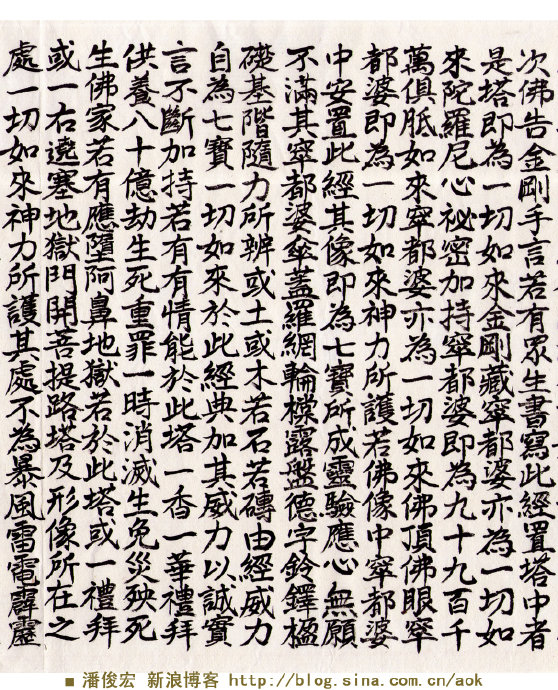 次佛告金剛手言若有眾生書寫此經置塔中者
是塔即為一切如來金剛藏窣都婆亦為一切如
來陀羅尼心祕密加持窣都婆即為九十九百千
萬俱胝如來窣都婆亦為一切如來佛頂佛眼窣
都婆即為一切如來神力所護若佛像中窣都婆
中安置此經其像即為七寶所成靈驗應心無願
不滿其窣都婆傘蓋羅網輪橖露盤德字鈴鐸楹
礎基階隨力所辨或土或木若石若磚由經威力
自為七寶一切如來於此經典加其威力以誠實
言不斷加持若有有情能於此塔一香一華禮拜
供養八十億劫生死重罪一時消滅生免災殃死
生佛家若有應墮阿鼻地獄若於此塔或一禮拜
或一右遶塞地獄門開菩提路塔及形像所在之
處一切如來神力所護其處不為暴風雷電霹靂
■ 潘俊宏 新浪博客 http://blog.sina.com.cn/aok